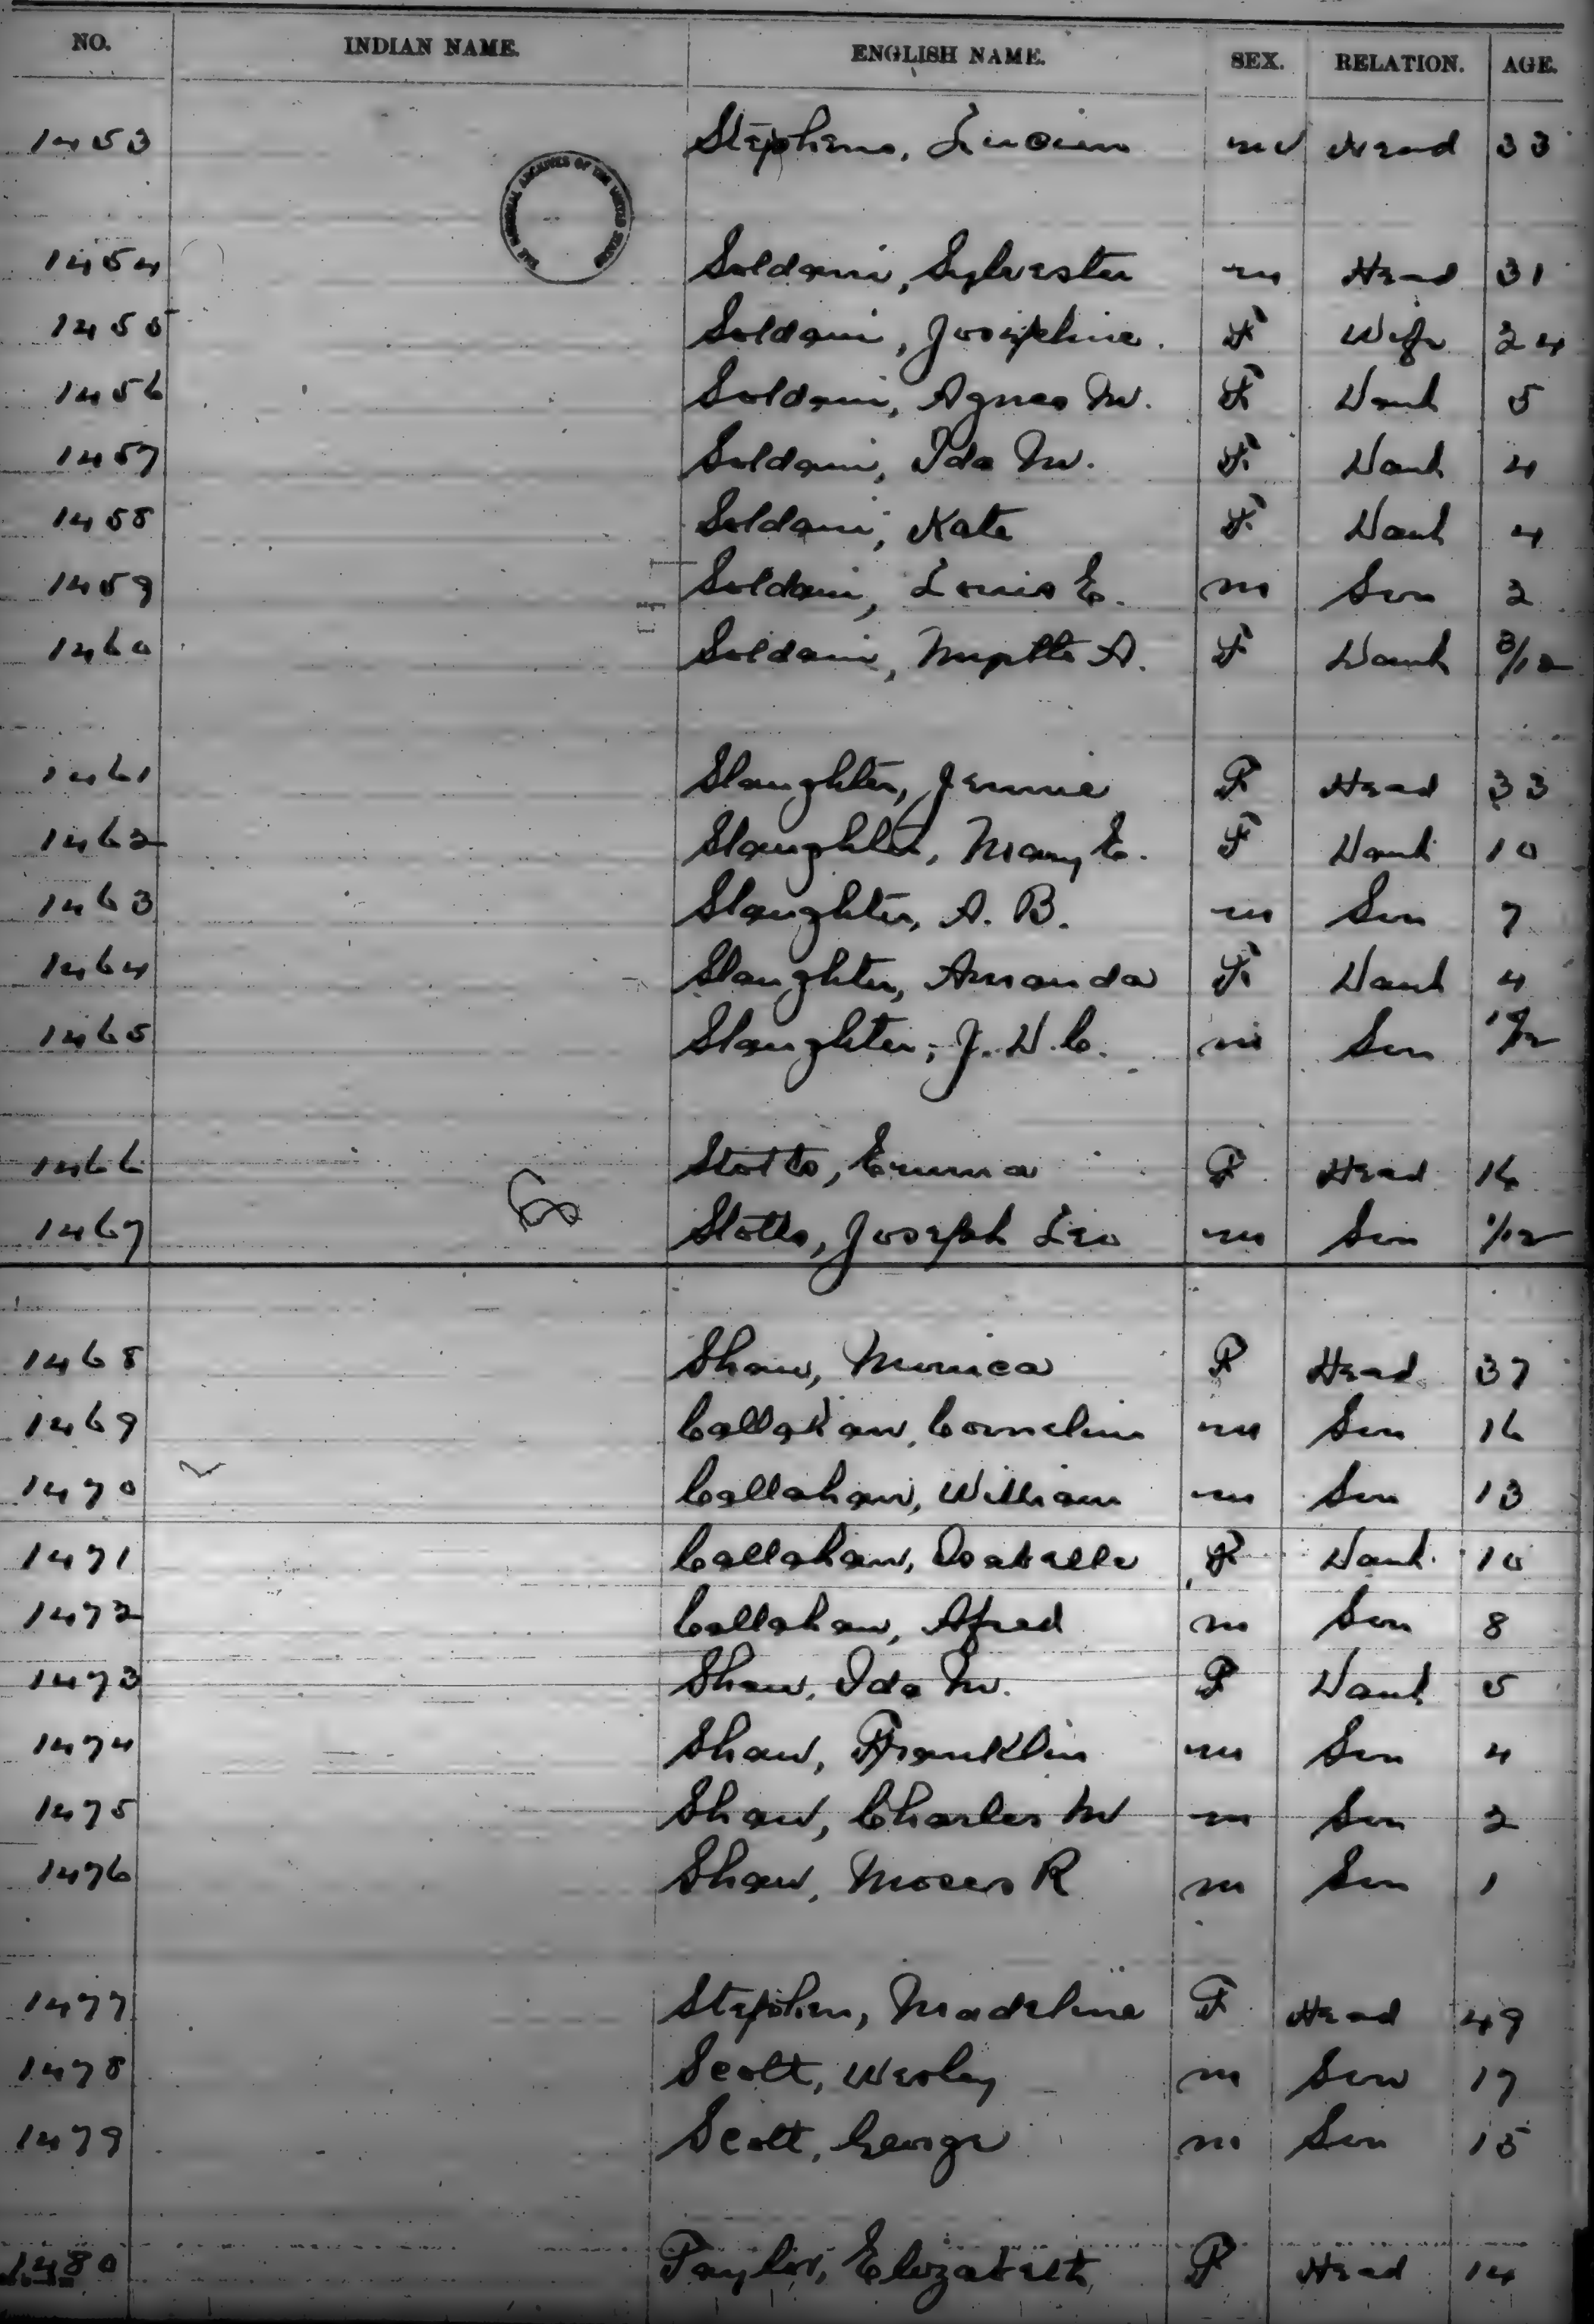 NO. INDIAN NAME. ENGLISH NAME. SEX. RELATION. AGE.
1453 Stephens, Lucien M Head 33
THE NATIONAL ARCHIVES OF THE UNITED STATES
1454 Soldani, Sylvester M Head 31
1455 Soldani, Josephine. F Wife 24
1456 Soldani, Agnes M. F Dauh 5
1457 Soldani, Ida M. F Dauh 4
1458 Soldani, Kate F Dauh 4
1459 Soldani, Louis E. M Son 2
1460 Soldani, Myrtle A. F Dauh 3/12
1461 Slaughter, Jennie F Head 33
1462 Slaughter, Mary E. F Dauh 10
1463 Slaughter, A. B. M Son 7
1464 Slaughter, Amanda F Dauh 4
1465 Slaughter, J. H. C. M Son
1466 Stotts, Emma F Head 16
1467 Stotts, Joseph Leo M Son 1/12
1468 Shaw, Monica F Head 37
1469 Callahan, Cornelius M Son 16
1470 Callahan, William M Son 13
1471 Callahan, Isabelle F Dauh 10
1472 Callahan, Afred M Son 8
1473 Shaw, Ida M. F Dauh 5
1474 Shaw, Franklin M Son 4
1475 Shaw, Charles M M Son 2
1476 Shaw, Moses R M Son 1
1477 Stephen, Madeline F Head 49
1478 Scott, Wesley M Son 17
1479 Scott, George M Son 15
1480 Taylor, Elizabeth F Head 14